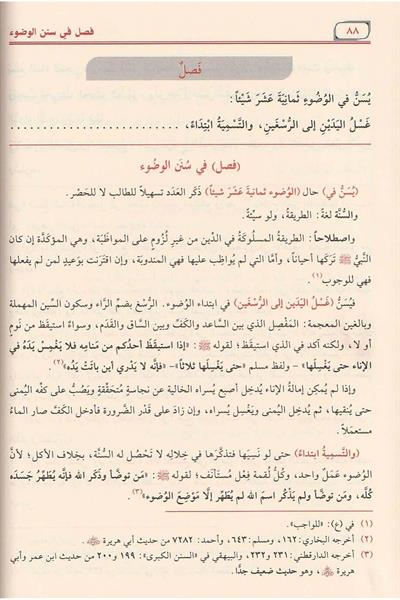 ٨٨
فصل في سنن الوضوء
فَصْلٌ
يُسَنُّ في الوُضُوءِ ثَمَانِيَةَ عَشَرَ شَيْئاً:
غَسْلُ اليَدَيْنِ إلى الرُّسْغَينِ، والتَّسْمِيَةُ ابْتِدَاءً، ........................
(فصل) في سُنَن الوضُوء
(يُسَنُّ في) حال (الوُضوء ثمانيةَ عَشَرَ شيئاً) ذَكَر العَدَد تسهيلاً للطالب لا للحَصْر.
والسُّنَّة لغةً: الطريقةُ، ولو سيِّئة.
واصطلاحاً: الطريقة المسلوكةُ في الدِّين من غيرِ لُزومٍ على المواظَبَة، وهي المؤكَّدة إن كان
النَّبيُّ ﷺ تَرَكها أحياناً، وأمَّا التي لم يُواظِب عليها فهي المندوبة، وإن اقترَنت بوَعيدٍ لمن لم يفعلها
فهي للوجوب(١).
فيُسَنُّ (غَسْلُ اليدَين إلى الرُّسغَين) في ابتداء الوُضوء. الرُّسْغ بضمِّ الرَّاء وسكون السِّين المهملة
وبالغين المعجمة: المَفْصِل الذي بين الساعد والكفِّ وبين الساق والقَدَم، وسواءٌ استيقَظ من نومٍ
أو لا، ولكنه آكد في الذي استيقَظ؛ لقوله ﷺ: «إذا استيقَظَ أحدُكم من مَنامِه فلا يَغْمِسْ يدَه في
الإناء حتى يَغْسِلَها» - ولفظ مسلم «حتى يَغسِلَها ثلاثاً» - «فإنه لا يَدْري أين باتَتْ يَدُه»(٢).
وإذا لم يُمكِن إمالةُ الإناء يُدخِل أصبع يُسراه الخالية عن نجاسةٍ متحقَّقةٍ ويَصُبُّ على كفِّه اليُمنى
حتى يُنقيها، ثم يُدخِل اليُمنى ويَغسِل يُسراه، وإن زادَ على قَدْر الضرورة فأدخل الكَفّ صار الماءُ
مستعمَلاً.
(والتَّسميةُ ابتداءً) حتى لو نَسِيَها فتذكَّرها في خِلاله لا تَحصُل له السُّنَّة، بخِلاف الأكل؛ لأنَّ
الوُضوء عَمَلٌ واحد، وكلُّ لُقمة فِعلٌ مُستَأنَف؛ لقوله ﷺ: «مَن توضَّأ وذَكَر الله فإنَّه يُطَهِّرُ جَسَدَه
كُلَّه، ومَن توضَّأ ولم يَذْكُر اسمَ الله لم يُطَهِّر إلَّا مَوْضِعَ الوُضوء»(٣).
(١) في (ع): «للواجب».
(٢) أخرجه البخاري: ١٦٢، ومسلم: ٦٤٣، وأحمد: ٧٢٨٢ من حديث أبي هريرة ﵁.
(٣) أخرجه الدارقطني: ٢٣١ و٢٣٢، والبيهقي في «السنن الكبرى»: ١٩٩ و٢٠٠ من حديث ابن عمر وأبي
هريرة ﵃، وهو حديث ضعيف جدًّا.